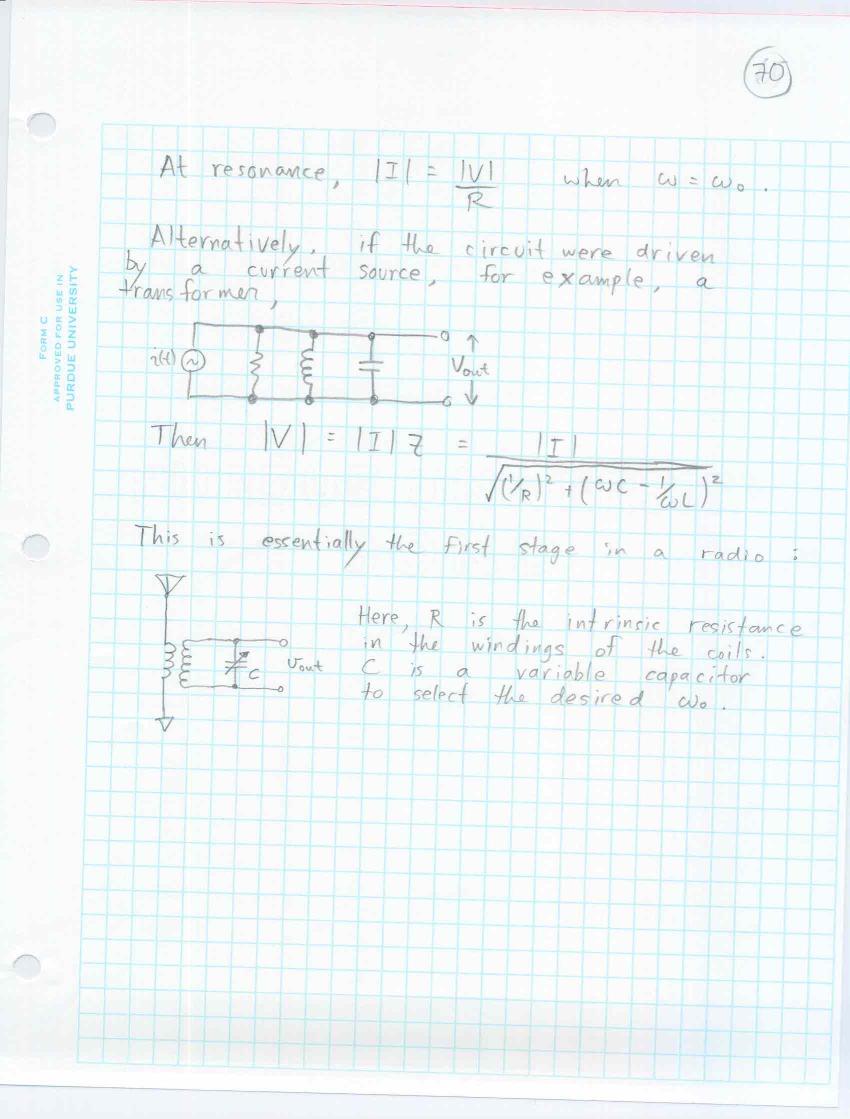 70
At resonance, |I| = |V|/R when ω = ω₀.
Alternatively, if the circuit were driven
by a current source, for example, a
transformer,
i(t) Vout
Then |V| = |I| Z = |I| / √((1/R)² + (ωC - 1/ωL)²)
This is essentially the first stage in a radio:
Here, R is the intrinsic resistance
in the windings of the coils.
C Vout C is a variable capacitor
to select the desired ω₀.
FORM C
APPROVED FOR USE IN
PURDUE UNIVERSITY